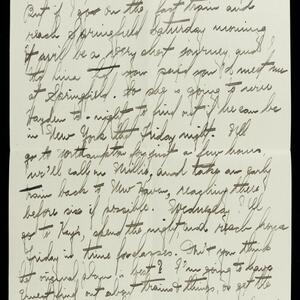 But if I go on the fast train and
reach Springfield Saturday morning
it will be a very short journey and I
at Springfield. So she is going to wire
Harden to-night to find out if he can be
in New York that Friday night. I'll
go to Northampton for just a few hours
we'll call on Nellie, and take an early
train back to New Haven, reaching there
before six if possible. Wednesday I'll
go to Kay's, spend the night and reach
Friday in time for classes. Don't you think
the original plan is best? I'm going to have
find out about trains & things, so get the